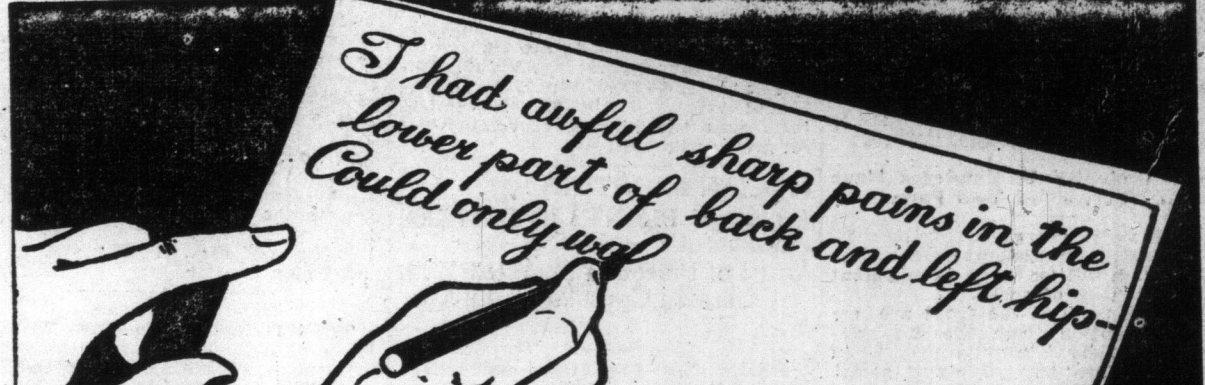 I had awful sharp pains in the
lower part of back and left hip--
Could only wal